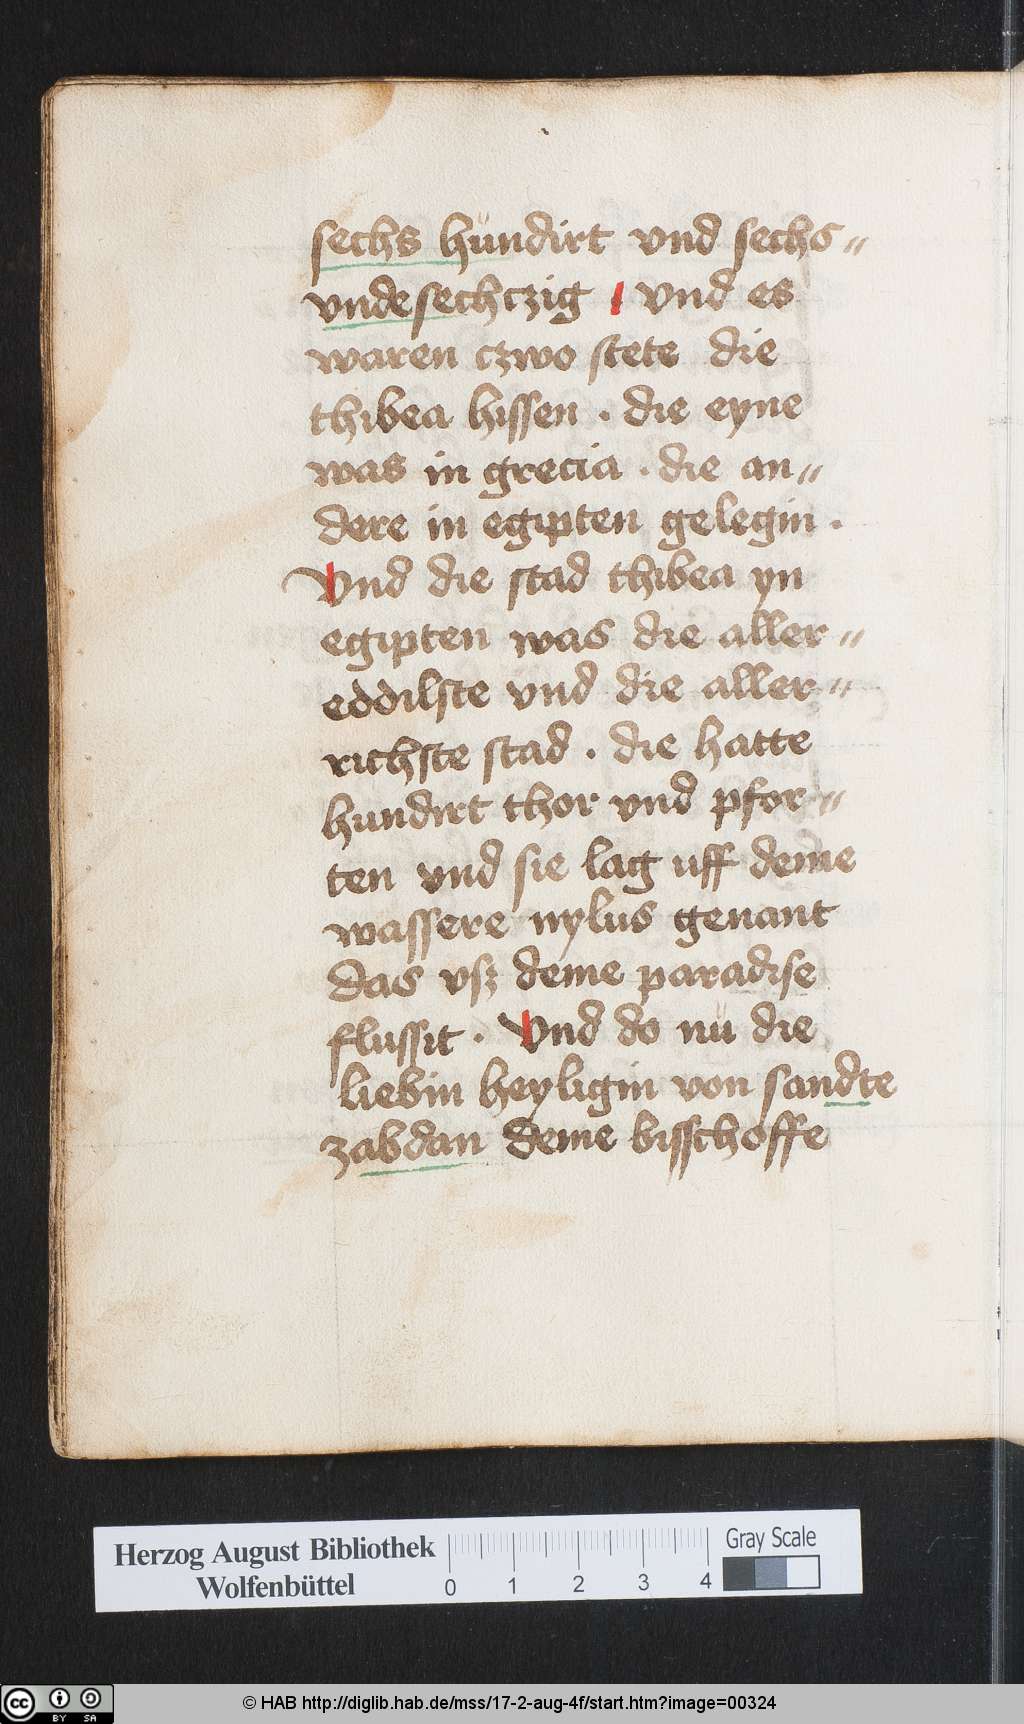 sechs hundirt vnd sechs„
vndesechczig vnd es
waren czwo stete die
thibea hissen . die eyne
was in grecia . die an„
dere in egipten gelegin .
Vnd die stad thibea yn
egipten was die aller„
eddilste vnd die aller„
richste stad . die hatte
hundirt thor vnd pfor„
ten vnd sie lag uff deme
wassere nylus genant
das vsz deme paradise
flussit . Vnd do nu die
liebin heyligin von sandte
zabdan deme bisschoffe
Herzog August Bibliothek
Wolfenbüttel
0 1 2 3 4
Gray Scale
cc BY SA
© HAB http://diglib.hab.de/mss/17-2-aug-4f/start.htm?image=00324